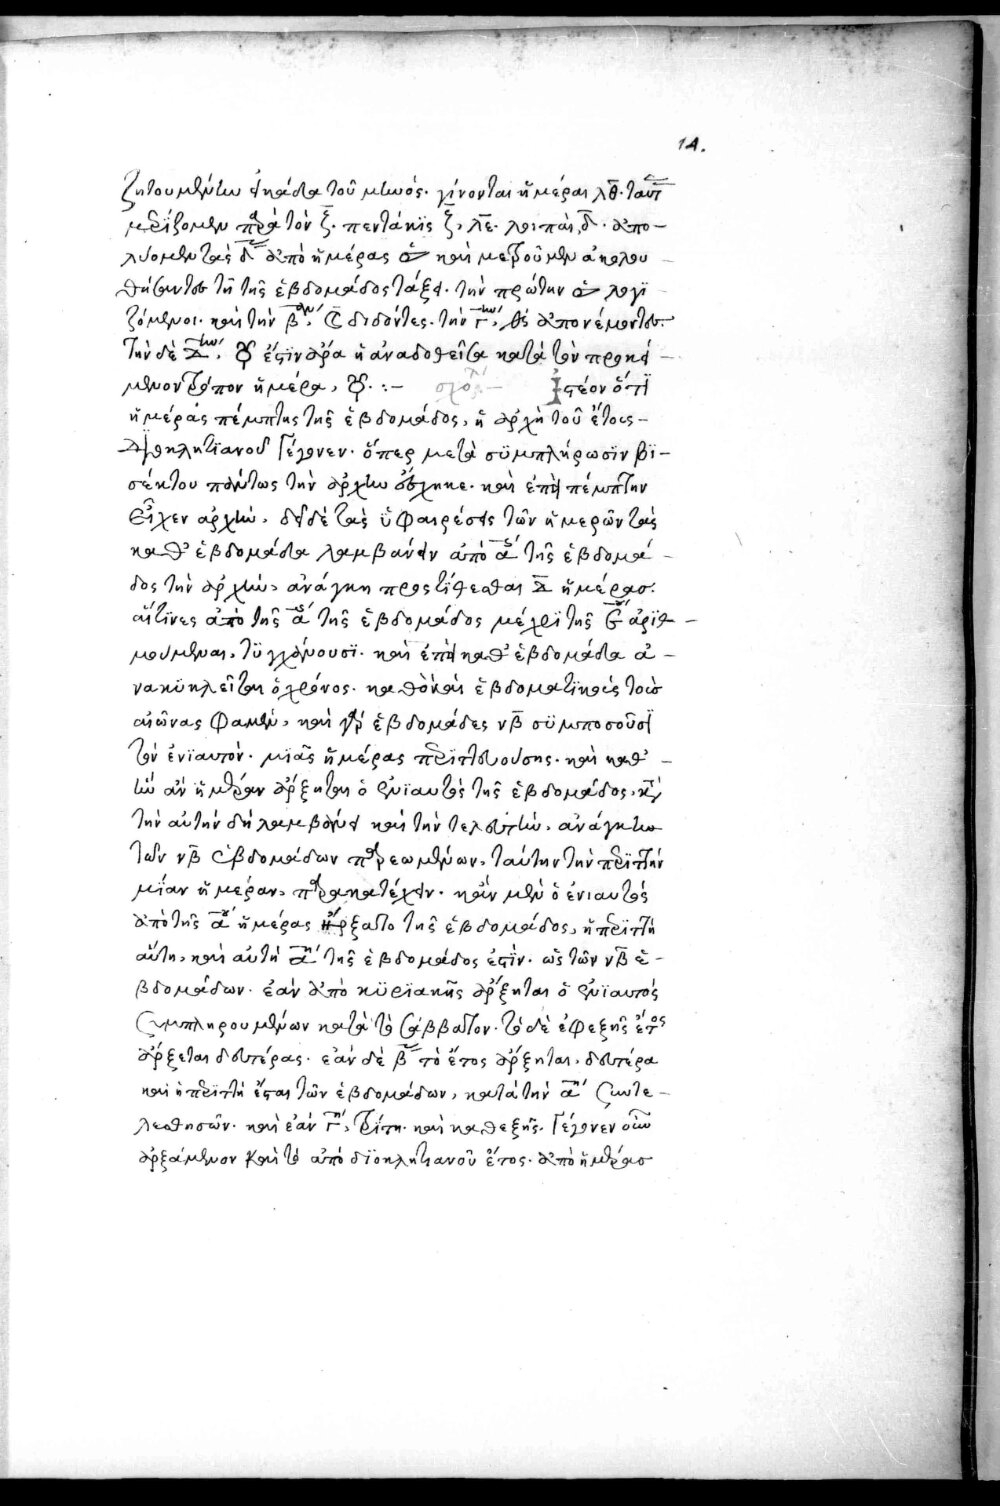 14.
ζητουμένων ἑπτάδα τοῦ μηνός. γίνονται ἡμέραι λθ. ταύτας
μερίζομεν παρὰ τὸν ζ. πεντάκις ζ, λε. λοιπαὶ, δ. ἀπο-
λύομεν τὰς δ ἀπὸ ἡμέρας ☉ καὶ μετροῦμεν ἀκολου-
θήσαντες τῇ τῆς ἑβδομάδος τάξει. τὴν πρώτην ☉ λογι-
ζόμενοι. καὶ τὴν β, ☾ διδόντες. τὴν γ, ἀπονέμοντες.
τὴν δὲ δ, ☿ ἔστιν ἄρα ἡ ἀναδοθεῖσα κατὰ τὸν προκεί-
μενον τρόπον ἡμέρα, ☿. :- σχό- Ἰστέον ὅτι
ἡμέρας πέμπτης τῆς ἑβδομάδος, ἡ ἀρχὴ τοῦ ἔτους-
Διοκλητιανοῦ γέγονεν. ὅπερ μετὰ συμπλήρωσιν βι-
σέκτου πάντως τὴν ἀρχὴν ἔσχηκε. καὶ ἐπεὶ πέμπτην
εἶχεν ἀρχὴν, δεῖ δὲ τὰς ὑφαιρέσεις τῶν ἡμερῶν τὰς
καθ' ἑβδομάδα λαμβάνειν ἀπὸ α τῆς ἑβδομά-
δος τὴν ἀρχὴν, ἀνάγκη προστίθεσθαι δ ἡμέρας.
αἵτινες ἀπὸ τῆς α τῆς ἑβδομάδος μέχρι τῆς ε ἀριθ-
μούμεναι, τυγχάνουσι. καὶ ἐπεὶ καθ' ἑβδομάδα ἀ-
νακυκλεῖται ὁ χρόνος. καθὸ καὶ ἑβδοματικοὺς τοὺς
αἰῶνας φαμὲν, καὶ ἑβδομάδες νβ συμποσοῦσι
τὸν ἐνιαυτόν. μιᾶς ἡμέρας περιττευούσης. καὶ καθ'
ἣν ἂν ἡμέραν ἄρξηται ὁ ἐνιαυτὸς τῆς ἑβδομάδος, κατὰ
τὴν αὐτὴν δὴ λαμβάνει καὶ τὴν τελευτὴν, ἀνάγκη
τῶν νβ ἑβδομάδων πληρεωμένων, ταύτην τὴν περιττὴν
μίαν ἡμέραν, παρακατέχειν. κἂν μὲν ὁ ἐνιαυτὸς
ἀπὸ τῆς α ἡμέρας ἤρξατο τῆς ἑβδομάδος, ἡ περιττὴ
αὕτη, καὶ αὐτὴ α τῆς ἑβδομάδος ἐστὶν. ὡς τῶν νβ ἑ-
βδομάδων. ἐὰν ἀπὸ κυριακῆς ἄρξηται ὁ ἐνιαυτὸς
συμπληρουμένων κατὰ τὸ σάββατον. τὸ δὲ ἐφεξῆς ἔτος
ἄρξεται δευτέρας. ἐὰν δὲ β τὸ ἔτος ἄρξηται, δευτέρα
καὶ ἡ περιττὴ ἔσται τῶν ἑβδομάδων, κατὰ τὴν α συντε-
λεσθησῶν. καὶ ἐὰν γ, τρίτη. καὶ καθεξῆς. γέγονεν οὖν
ἀρξάμενον καὶ τὸ ἀπὸ διοκλητιανοῦ ἔτος. ἀπὸ ἡμέρας